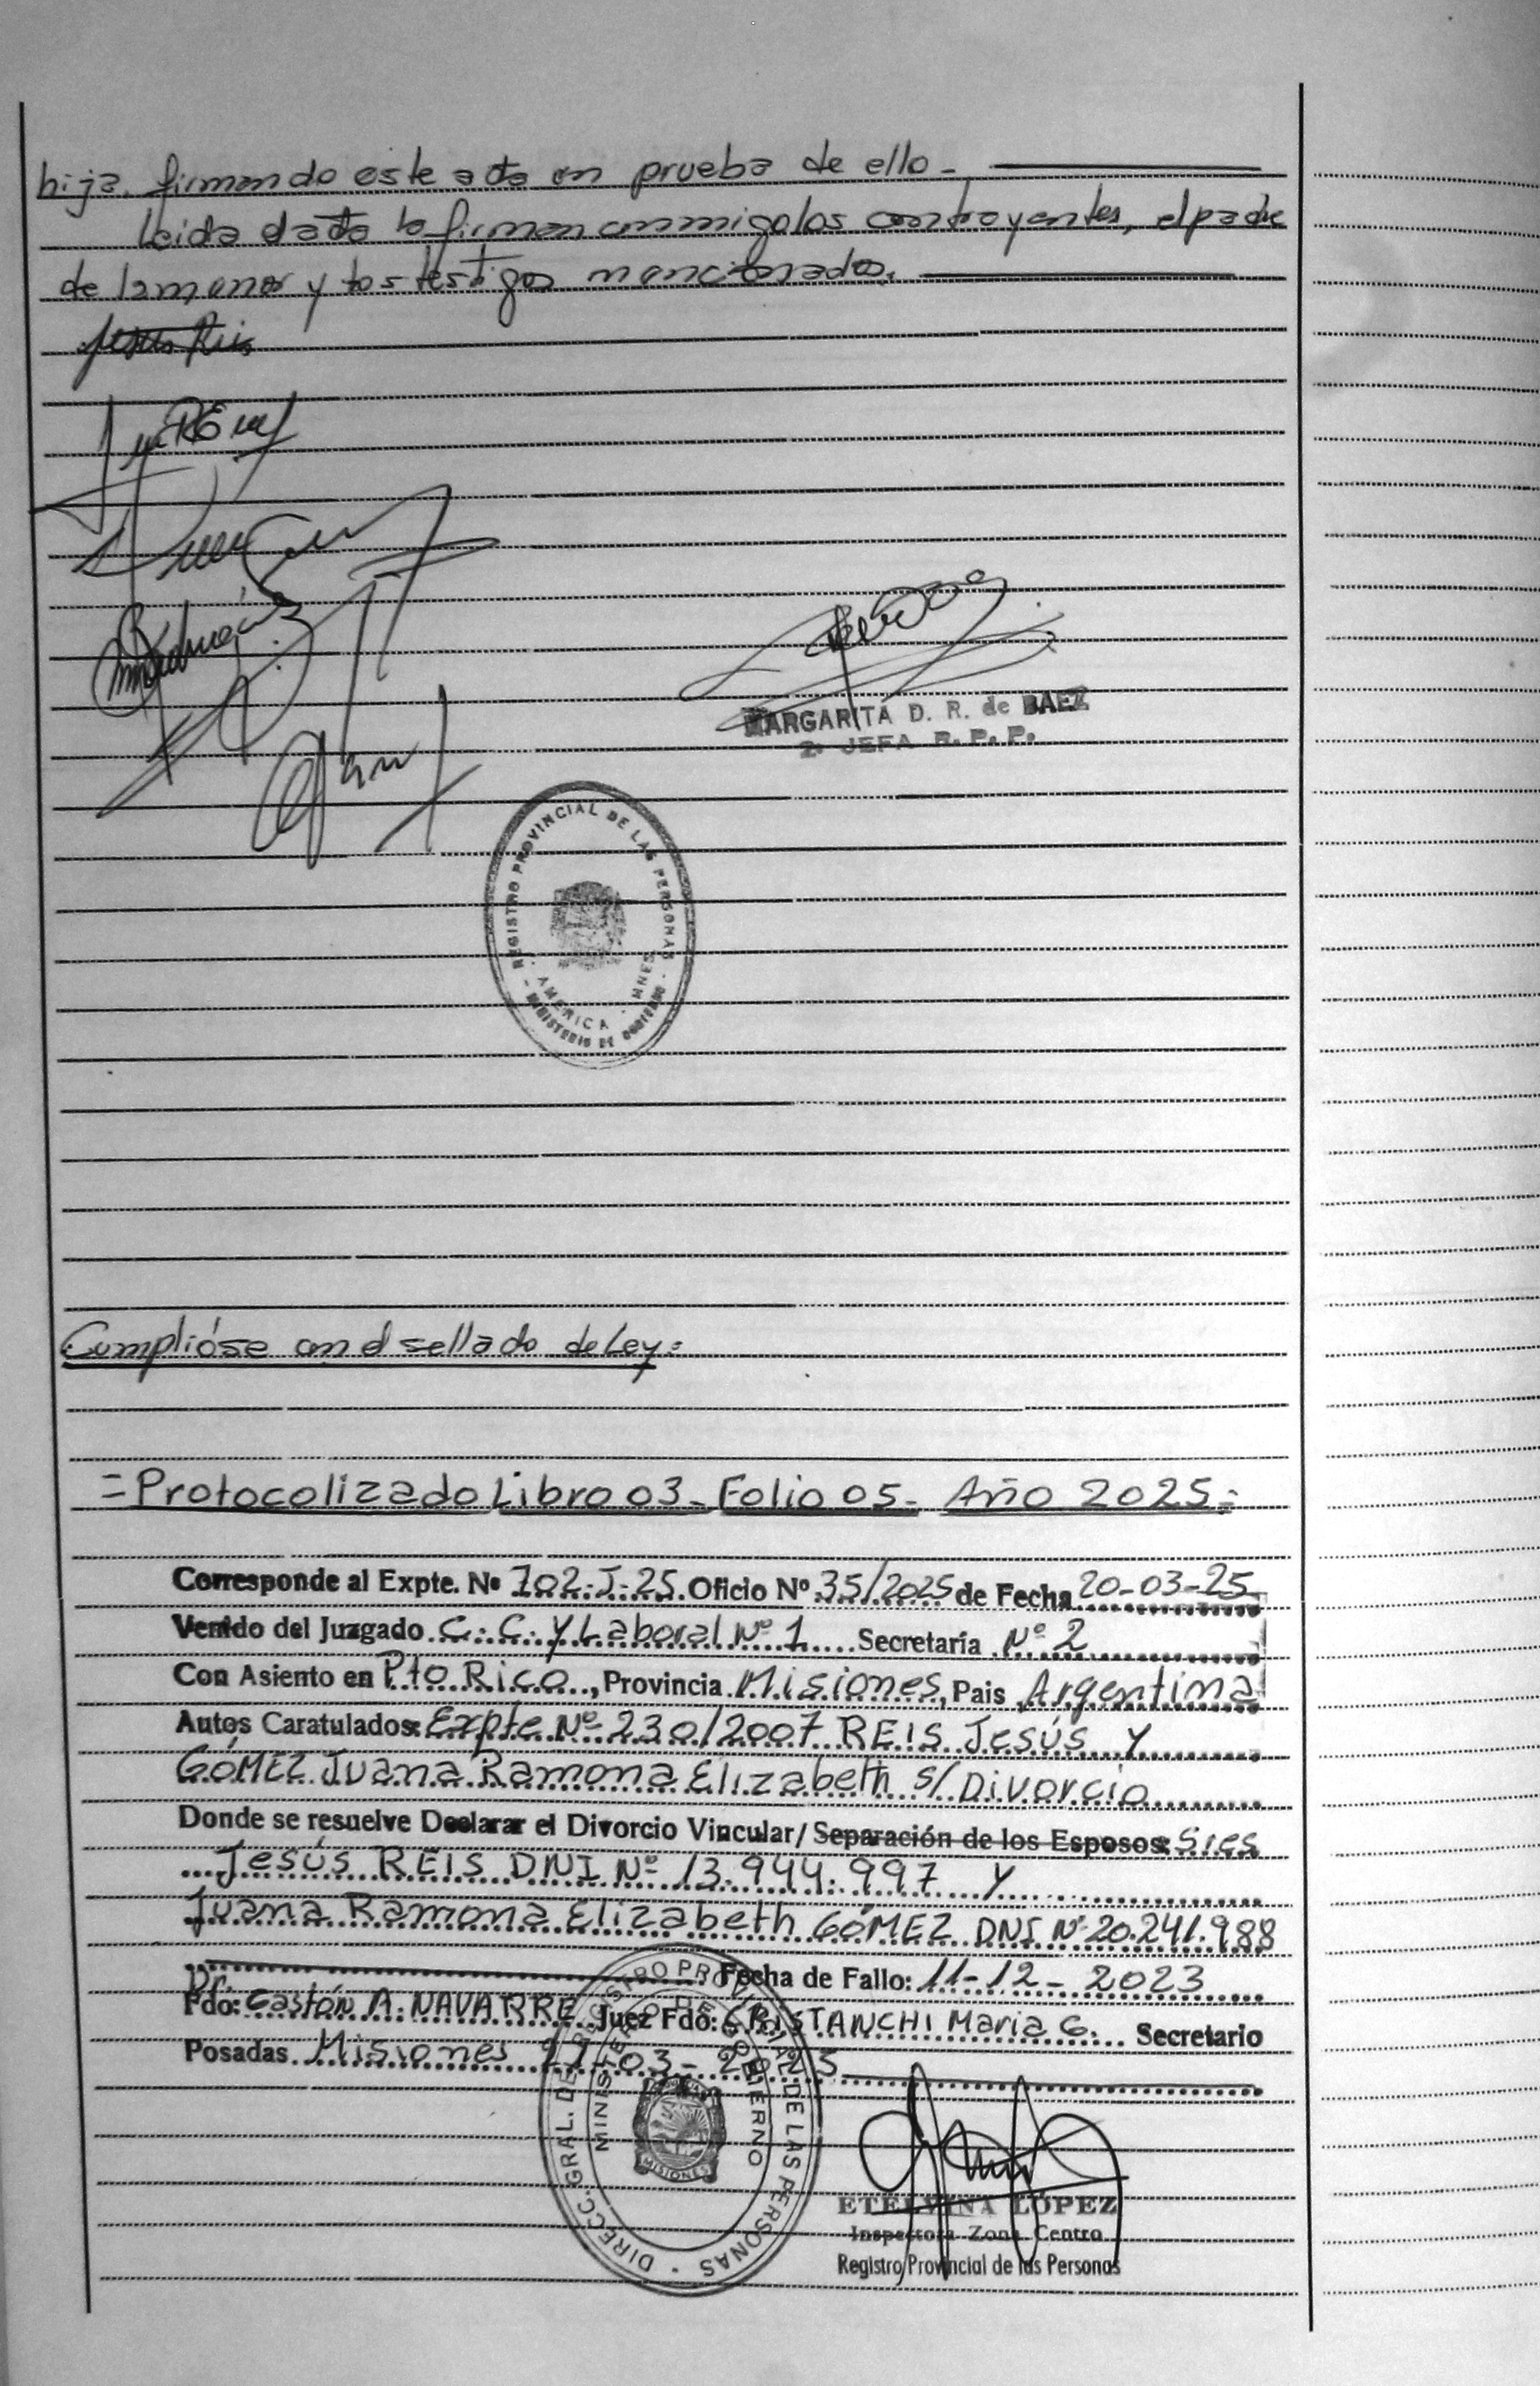 hija, firmando este acta en prueba de ello.
Leida el acta la firman conmigo los contrayentes, el padre
de la menor y los testigos mencionados.
Jesús Reis
MARGARITA D. R. de BAEZ
2. JEFA R. P. P.
REGISTRO PROVINCIAL DE LAS PERSONAS
AMERICA - MNES.
- MINISTERIO DE GOBIERNO -
Cumplióse con el sellado de Ley=
=Protocolizado Libro 03- Folio 05- Año 2025=
Corresponde al Expte. Nº 102-J-25 Oficio Nº 35/2025 de Fecha 20-03-25
Venido del Juzgado C. C. y Laboral Nº 1 Secretaría Nº 2
Con Asiento en Pto Rico, Provincia Misiones, Pais Argentina
Autos Caratulados: Expte Nº 230/2007 REIS JESÚS Y
GÓMEZ Juana Ramona Elizabeth s/Divorcio
Donde se resuelve Declarar el Divorcio Vincular/ Separación de los Esposos: Sres
Jesús REIS DNI Nº 13.944.997 Y
Juana Ramona Elizabeth GÓMEZ DNI Nº 20.241.988
Fecha de Fallo: 11-12-2023
Fdo: Dr. Gastón A. NAVARRE Juez Fdo: CRISTANCHI Maria G. Secretario
Posadas Misiones 21-03-2025
DIRECC. GRAL. DE REGISTRO PROVINCIAL DE LAS PERSONAS -
MINISTERIO DE GOBIERNO
MISIONES
ETELVINA LOPEZ
Inspectora Zona Centro
Registro Provincial de las Personas